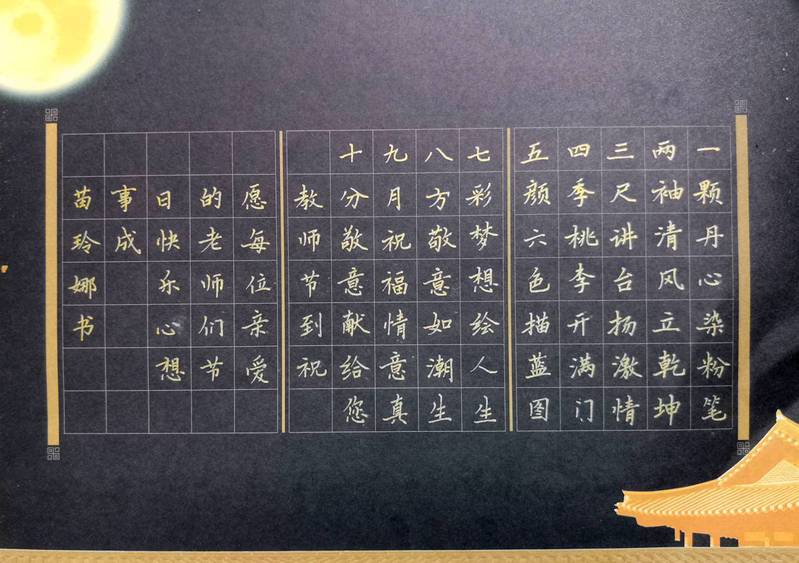 一颗丹心染粉笔
两袖清风立乾坤
三尺讲台扬激情
四季桃李开满门
五颜六色描蓝图
七彩梦想绘人生
八方敬意如潮生
九月祝福情意真
十分敬意献给您
教师节到祝
愿每位亲爱
的老师们节
日快乐心想
事成
苗玲娜书